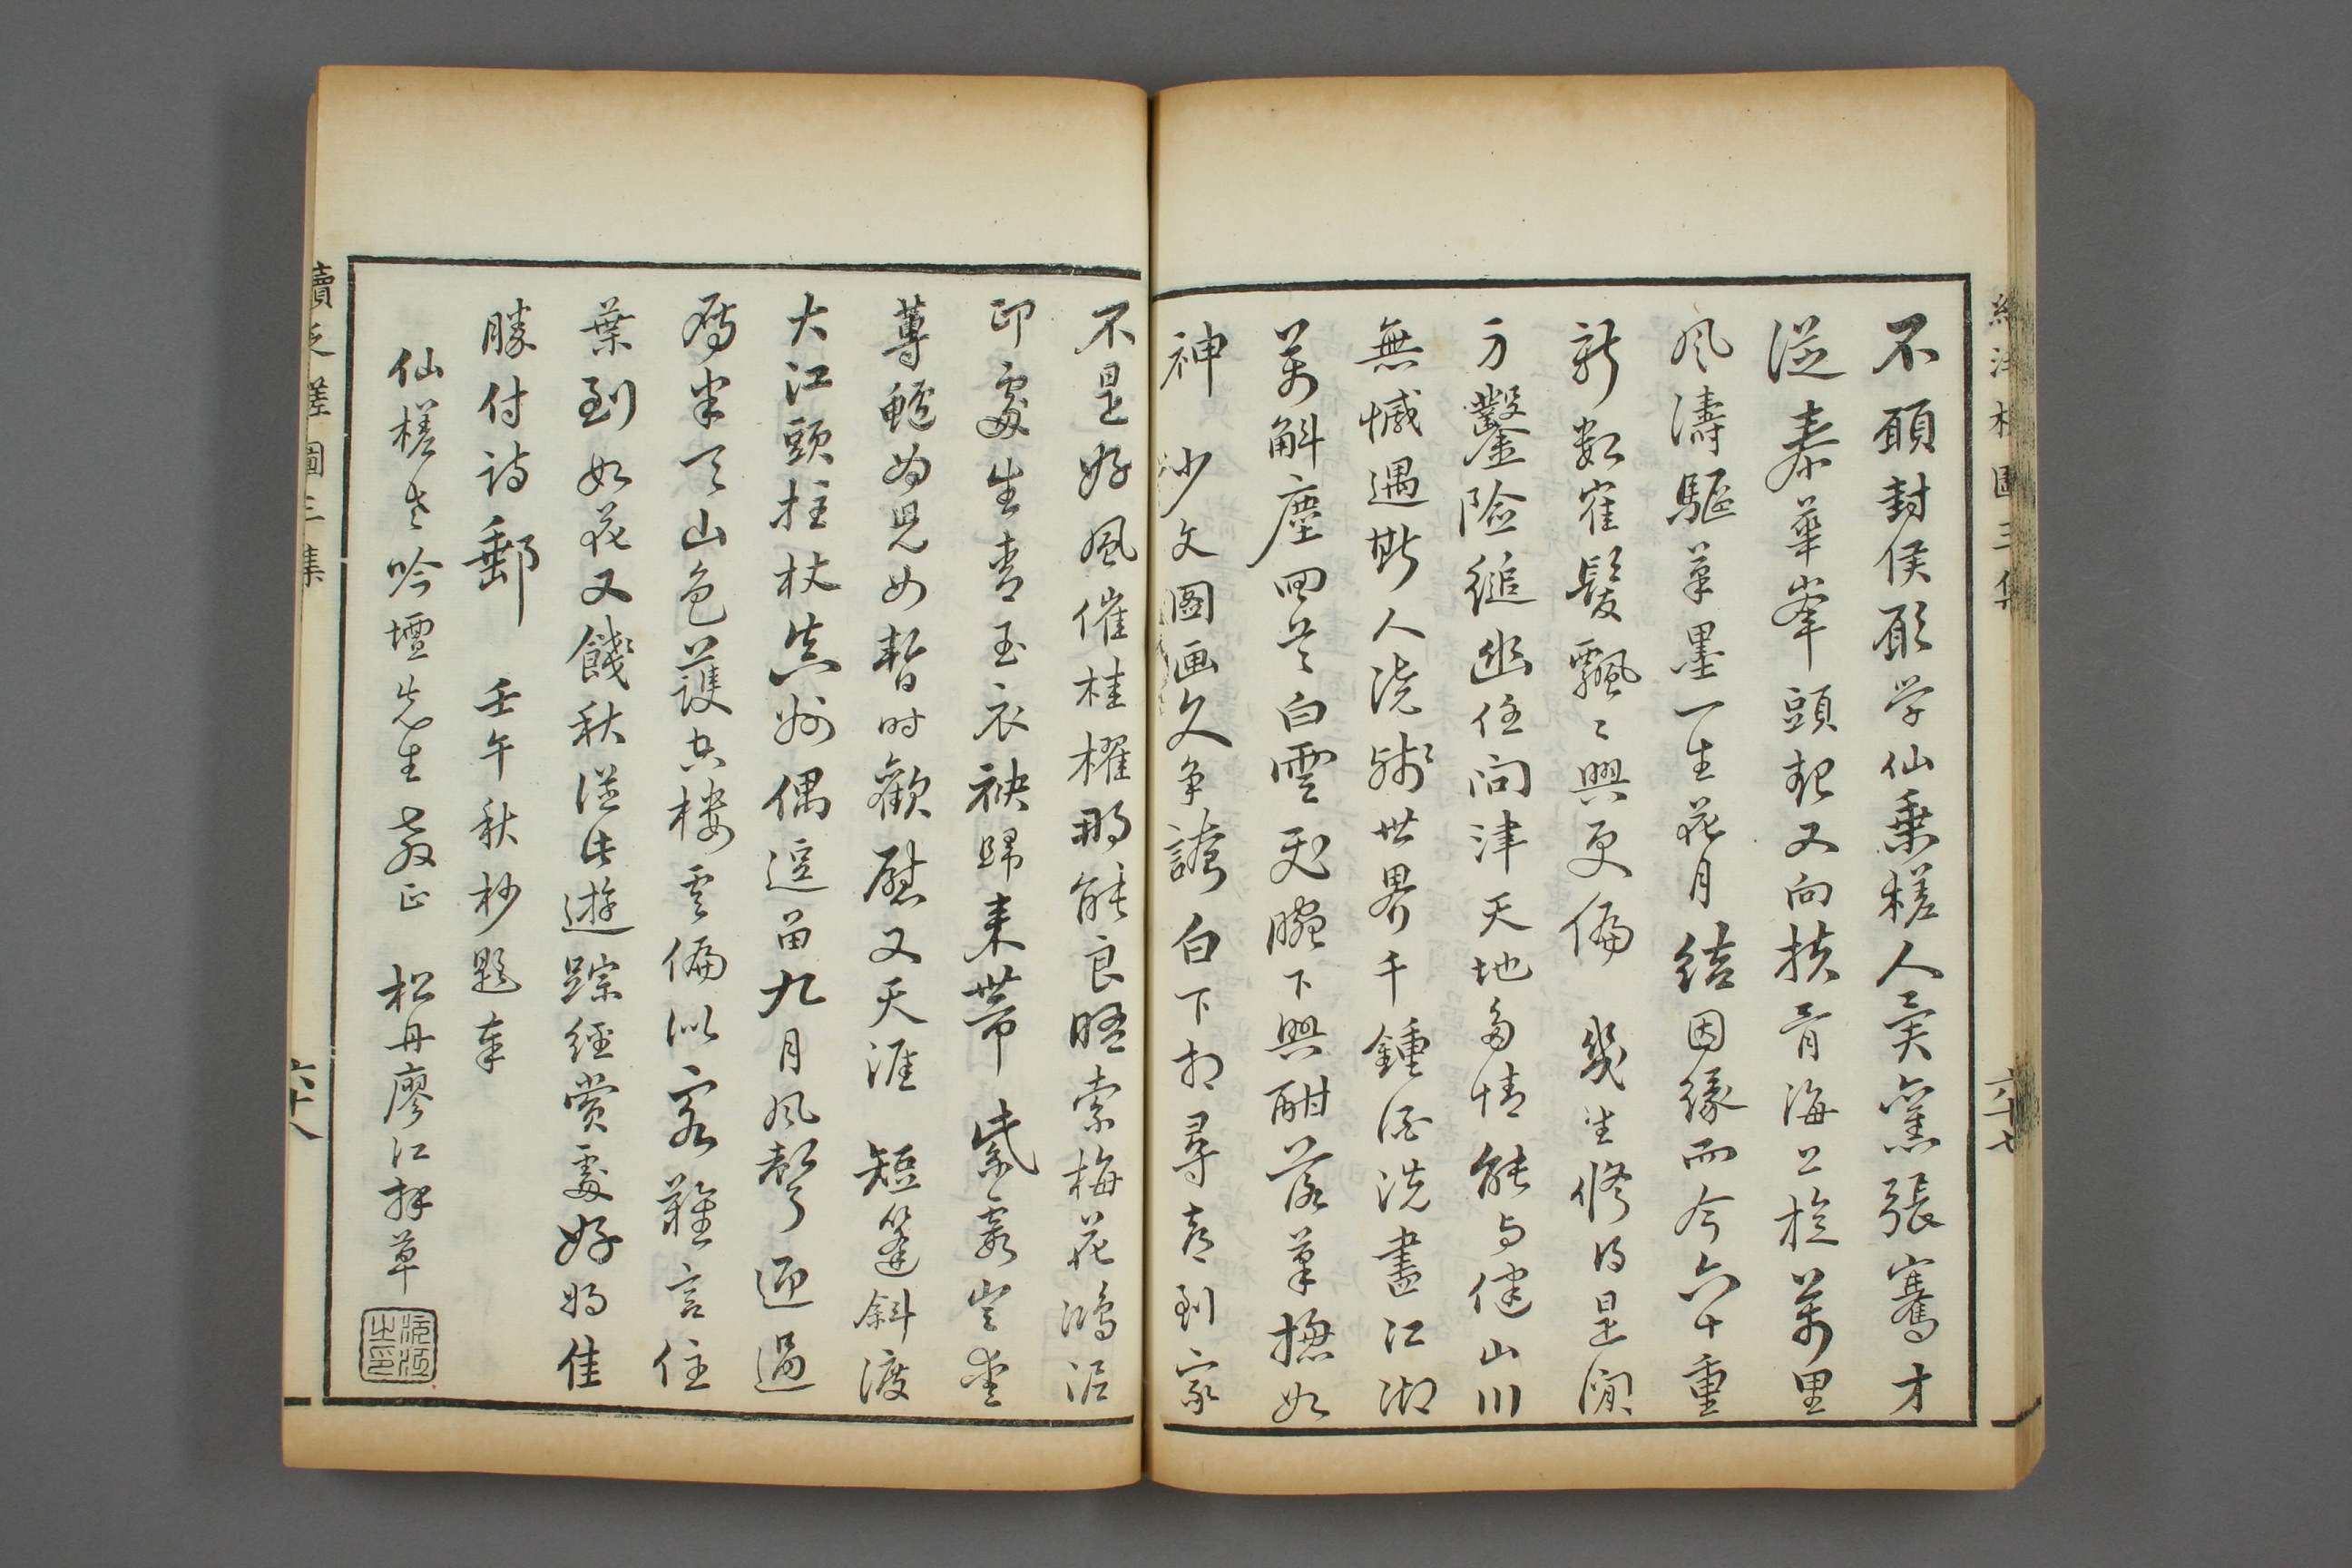 不願封侯願学仙乗槎人笑舊張騫才
從泰華峯頭起又向扶胥海上旋萬里
風濤驅筆墨一生花月結因緣而今六十重
新數寉髮飄〻興更偏 幾生修得是閒
方鑿險縋幽任問津天地多情能与健山川
無憾遇斯人澆殘世界千鍾酒洗盡江湖
萬斛塵四首白雲飛腕下興酣落筆撫如
神 少文圖画久争誇白下相尋喜到家
不是好風催桂櫂那能良晤索梅花鴻泥
印處生青玉衣袂歸来帶紫霞豈
蓴鱸為兒女暫時歡慰又天涯 短篷斜渡
大江頭拄杖真州偶逗留九月風聲迎過
雁半天山色護空樓雲偏似客難言住
葉到如花又餞秋從此遊踪經賞處好將佳
勝付詩郵 壬午秋杪題奉
仙槎老吟壇先生教正 松丹廖江拜草
續泛槎圖三集
六十八
六十七